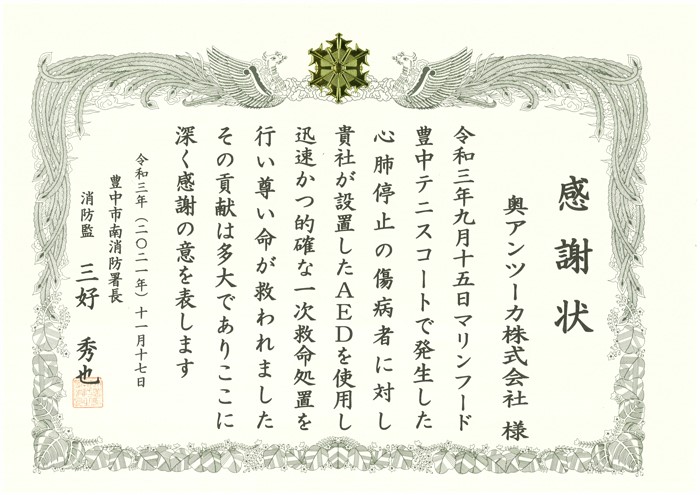 感謝状
奥アンツーカ株式会社 様
令和三年九月十五日マリンフード
豊中テニスコートで発生した
心肺停止の傷病者に対し
貴社が設置したAEDを使用し
迅速かつ的確な一次救命処置を
行い尊い命が救われました
その貢献は多大でありここに
深く感謝の意を表します
令和三年（二〇二一年）十一月十七日
豊中市南消防署長
消防監 三好 秀也